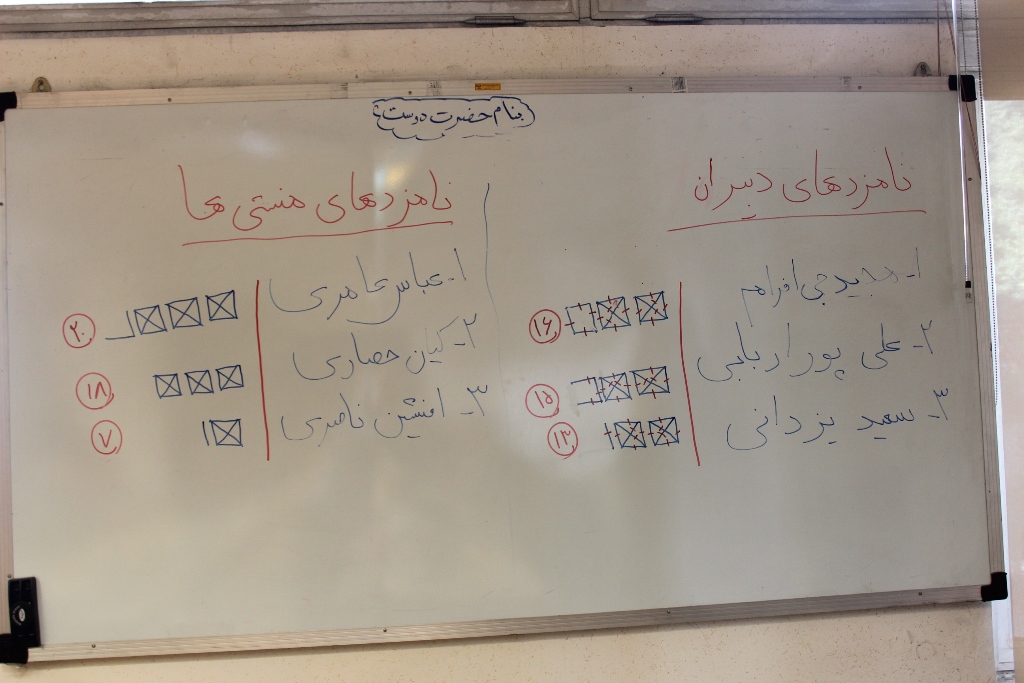 بنام حضرت دوست
نامزدهای دبیران
۱- مجید جی افرام
۱۶
۲- علی پور اربابی
۱۵
۳- سعید یزدانی
۱۳
نامزدهای منشی ها
۱- عباس عامری
۲۰
۲- کیان حصاری
۱۸
۳- افشین ناصری
۷